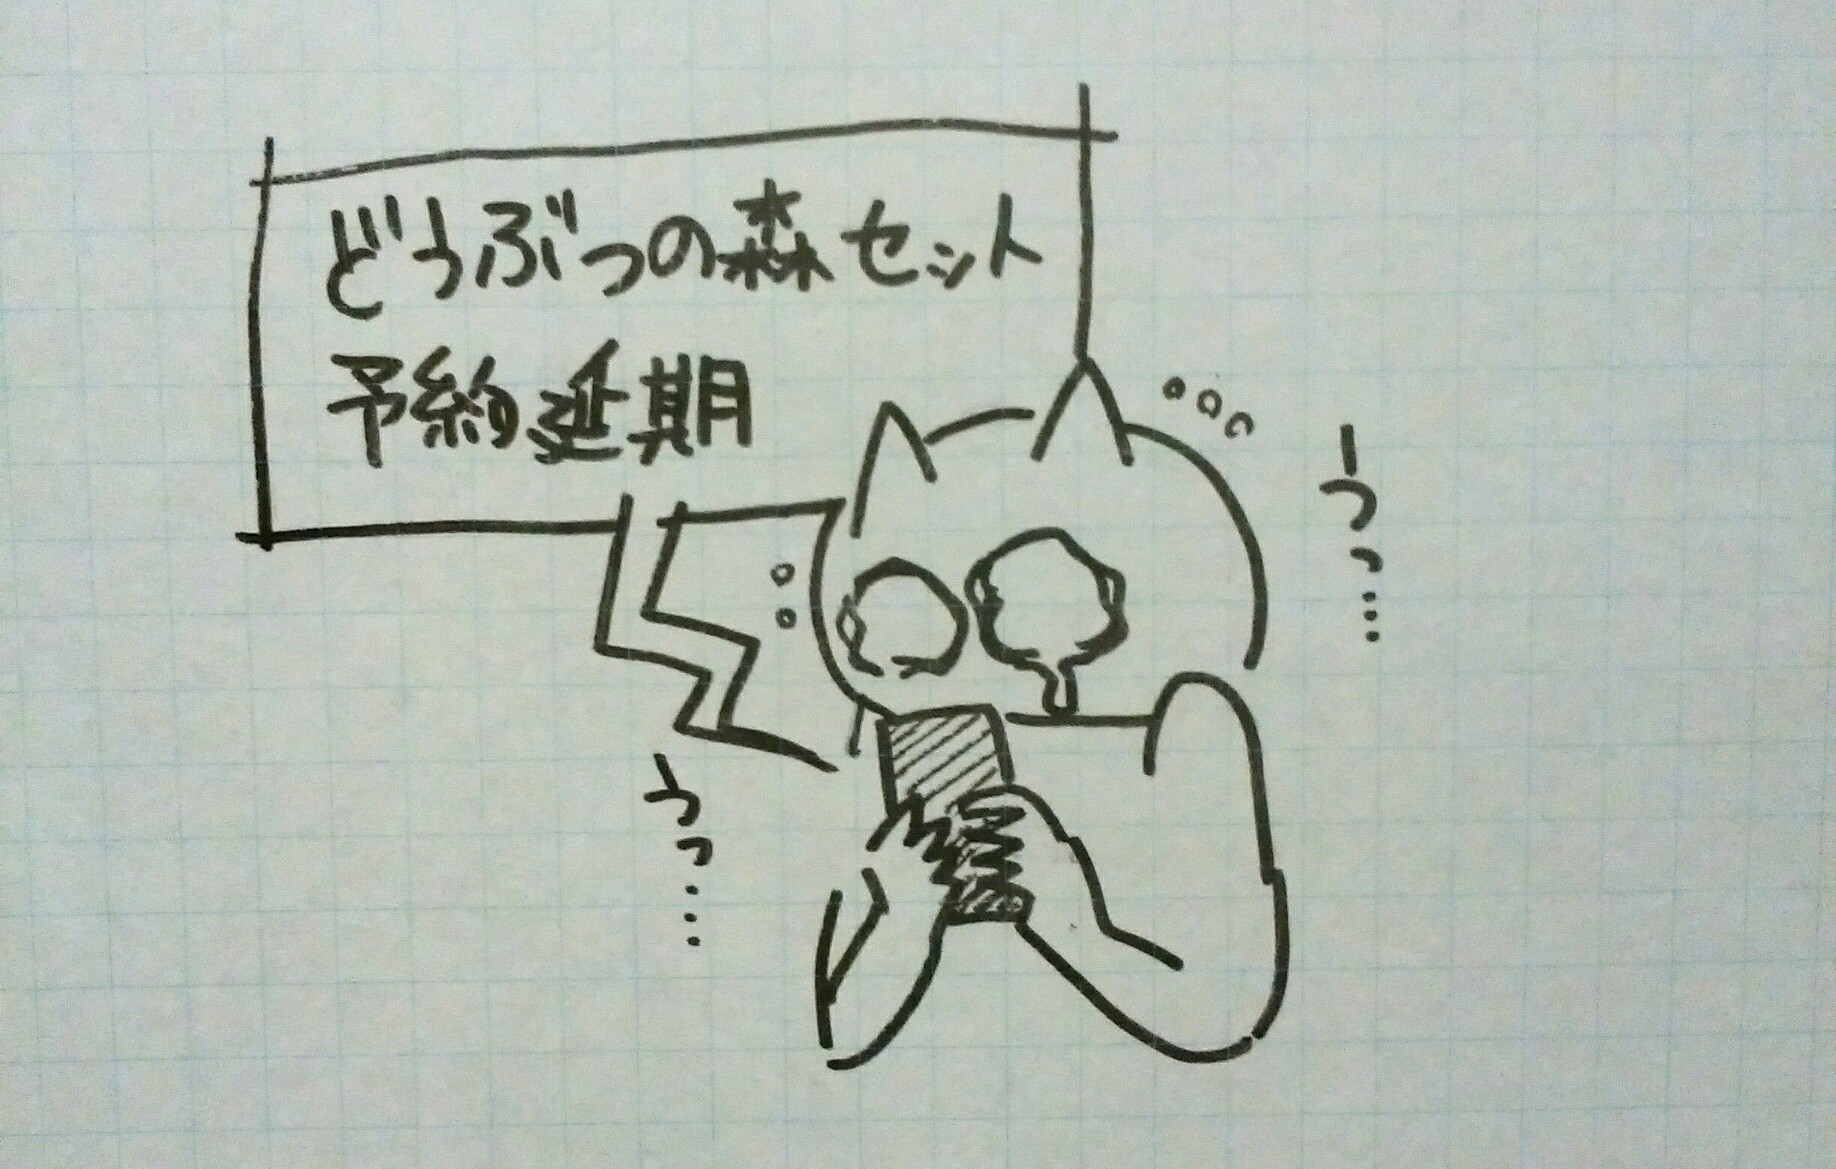 どうぶつの森セット
予約延期
うっ…
うっ…